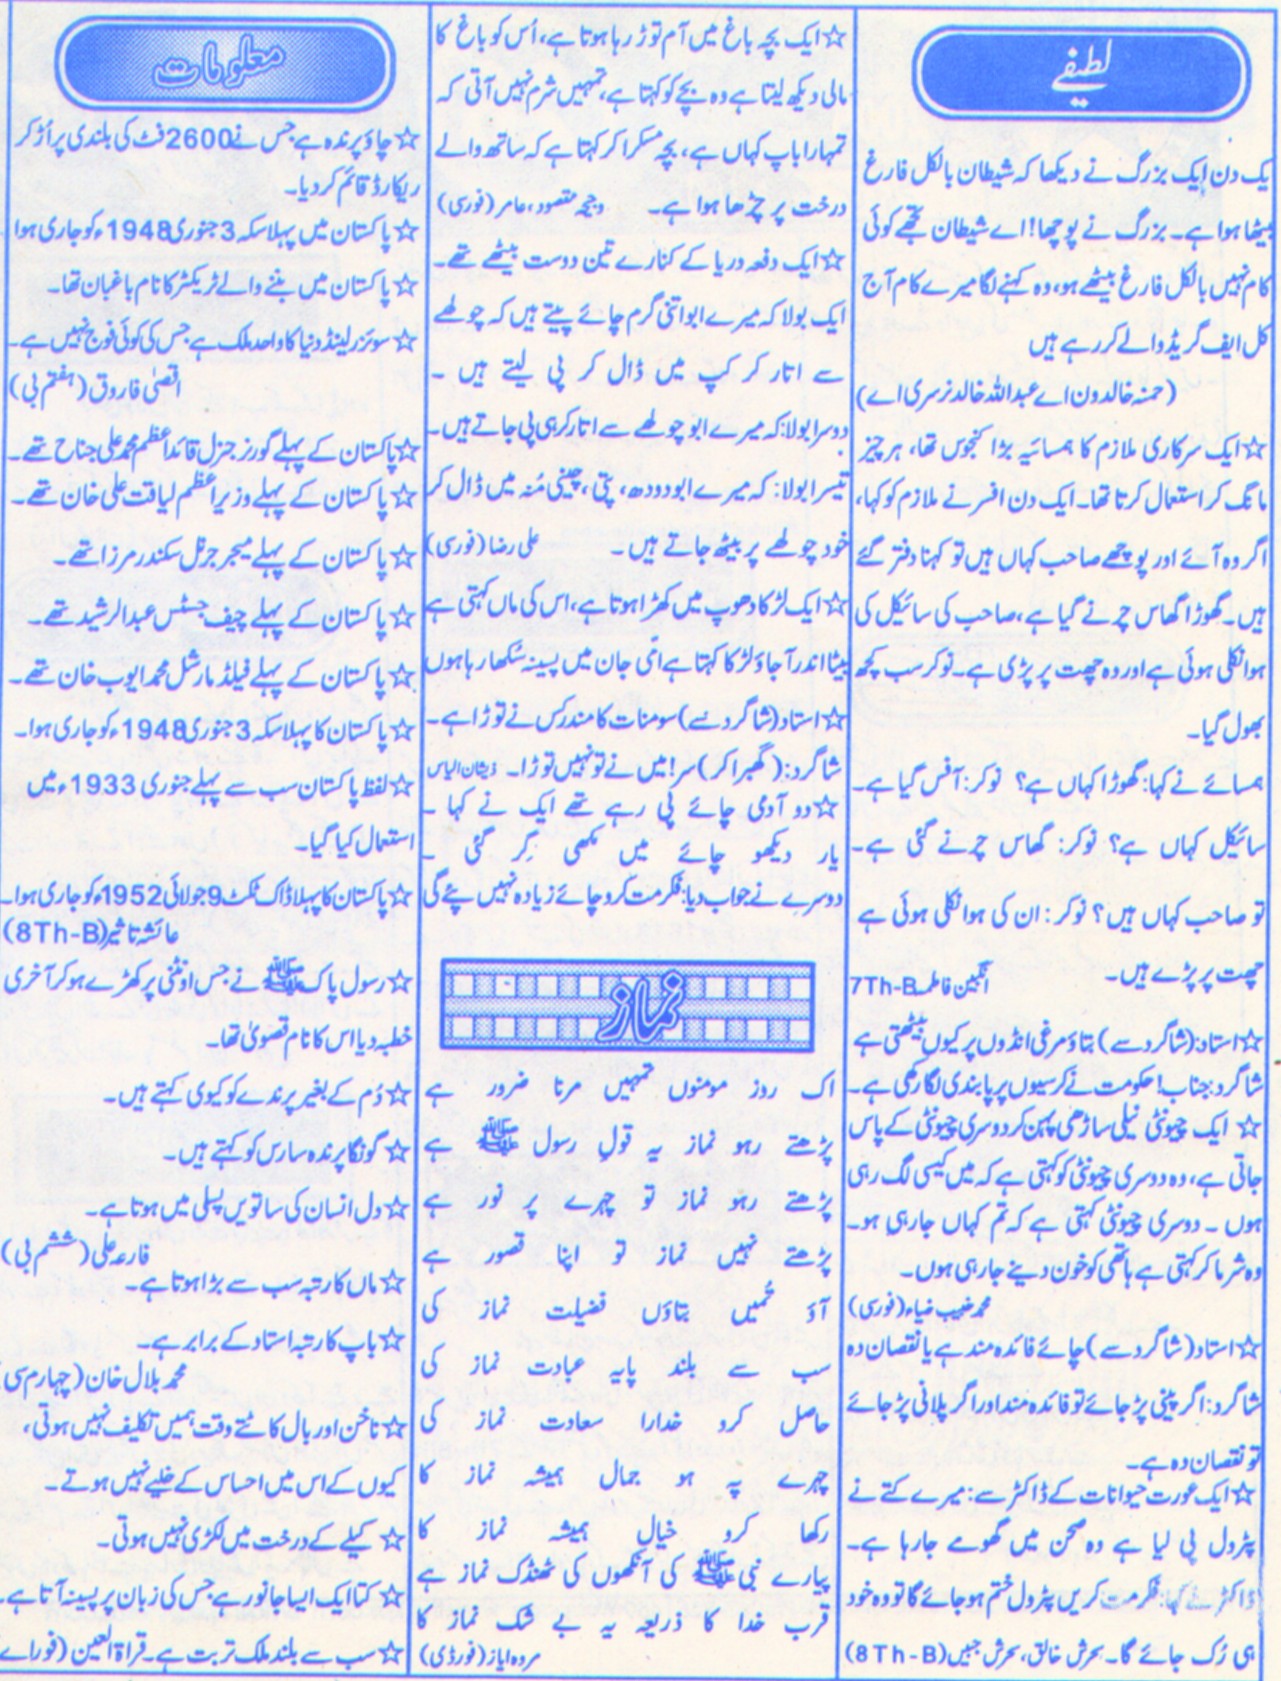 لطیفے
یک دن ایک بزرگ نے دیکھا کہ شیطان بالکل فارغ
بیٹھا ہوا ہے۔ بزرگ نے پوچھا! اے شیطان تجھے کوئی
کام نہیں بالکل فارغ بیٹھے ہو، وہ کہنے لگا میرے کام آج
کل ایف گریڈ والے کر رہے ہیں
(حمنہ خالد ون اے عبداللہ خالد نرسری اے)
☆ ایک سرکاری ملازم کا ہمسائیہ بڑا کنجوس تھا، ہر چیز
مانگ کر استعمال کرتا تھا۔ ایک دن افسر نے ملازم کو کہا،
اگر وہ آئے اور پوچھے صاحب کہاں ہیں تو کہنا دفتر گئے
ہیں۔ گھوڑا گھاس چرنے گیا ہے، صاحب کی سائیکل کی
ہوا نکلی ہوئی ہے اور وہ چھت پر پڑی ہے۔ نوکر سب کچھ
بھول گیا۔
ہمسائے نے کہا: گھوڑا کہاں ہے؟ نوکر: آفس گیا ہے۔
سائیکل کہاں ہے؟ نوکر: گھاس چرنے گئی ہے۔
تو صاحب کہاں ہیں؟ نوکر: ان کی ہوا نکلی ہوئی ہے
چھت پر پڑے ہیں۔ انجبین فاطمہ 7Th-B
☆ استاد: (شاگرد سے) بتاؤ مرغی انڈوں پر کیوں بیٹھتی ہے
شاگرد: جناب! حکومت نے کرسیوں پر پابندی لگا رکھی ہے۔
☆ ایک چیونٹی نیلی ساڑھی پہن کر دوسری چیونٹی کے پاس
جاتی ہے، وہ دوسری چیونٹی کو کہتی ہے کہ میں کیسی لگ رہی
ہوں ۔ دوسری چیونٹی کہتی ہے کہ تم کہاں جا رہی ہو۔
وہ شرما کر کہتی ہے ہاتھی کو خون دینے جا رہی ہوں۔
محمد نجیب ضیاء (فوری)
☆ استاد (شاگرد سے) چائے فائدہ مند ہے یا نقصان دہ
شاگرد: اگر پینی پڑ جائے تو فائدہ مند اور اگر پلانی پڑ جائے
تو نقصان دہ ہے۔
☆ ایک عورت حیوانات کے ڈاکٹر سے: میرے کتے نے
پٹرول پی لیا ہے وہ صحن میں گھومے جا رہا ہے۔
ڈاکٹر نے کہا: فکر مت کریں پٹرول ختم ہو جائے گا تو وہ خود
ہی رُک جائے گا۔ سحرش خالق، سحرش جبیں (8Th-B)
☆ ایک بچہ باغ میں آم توڑ رہا ہوتا ہے، اُس کو باغ کا
مالی دیکھ لیتا ہے وہ بچے کو کہتا ہے، تمہیں شرم نہیں آتی کہ
تمہارا باپ کہاں ہے، بچہ مسکرا کر کہتا ہے کہ ساتھ والے
درخت پر چڑھا ہوا ہے۔ وجیہہ مقصود، عامر (فوری)
☆ ایک دفعہ دریا کے کنارے تین دوست بیٹھے تھے۔
ایک بولا کہ میرے ابو اتنی گرم چائے پیتے ہیں کہ چولھے
سے اتار کر کپ میں ڈال کر پی لیتے ہیں ۔
دوسرا بولا: کہ میرے ابو چولھے سے اتار کر ہی پی جاتے ہیں۔
تیسرا بولا: کہ میرے ابو دودھ، پتی، چینی مُنہ میں ڈال کر
خود چولھے پر بیٹھ جاتے ہیں۔ علی رضا (فوری)
☆ ایک لڑکا دھوپ میں کھڑا ہوتا ہے، اس کی ماں کہتی ہے
بیٹا اندر آجاؤ لڑکا کہتا ہے امی جان میں پسینہ سُکھا رہا ہوں
☆ استاد (شاگرد سے) سومنات کا مندر کس نے توڑا ہے۔
شاگرد: (گھبرا کر) سر! میں نے تو نہیں توڑا۔ ذیشان الیاس
☆ دو آدمی چائے پی رہے تھے ایک نے کہا ۔
یار دیکھو چائے میں مکھی گر گئی ۔
دوسرے نے جواب دیا: فکر مت کرو چائے زیادہ نہیں پئے گی
نماز
اک روز مومنوں تمہیں مرنا ضرور ہے
پڑھتے رہو نماز یہ قولِ رسول ﷺ ہے
پڑھتے رہو نماز تو چہرے پر نور ہے
پڑھتے نہیں نماز تو اپنا قصور ہے
آؤ تُمیں بتاؤں فضیلت نماز کی
سب سے بلند پایہ عبادت نماز کی
حاصل کرو خدارا سعادت نماز کی
چہرے پہ ہو جمال ہمیشہ نماز کا
رکھا کرو خیال ہمیشہ نماز کا
پیارے نبی ﷺ کی آنکھوں کی ٹھنڈک نماز ہے
قرب خدا کا ذریعہ یہ بے شک نماز کا
مروہ ایاز (فورڈی)
معلومات
☆ چاؤ پرندہ ہے جس نے 2600 فٹ کی بلندی پر اُڑ کر
ریکارڈ قائم کر دیا۔
☆ پاکستان میں پہلا سکہ 3 جنوری 1948ء کو جاری ہوا
☆ پاکستان میں بننے والے ٹریکٹر کا نام باغبان تھا۔
☆ سوئزرلینڈ دنیا کا واحد ملک ہے جس کی کوئی فوج نہیں ہے۔
اقصیٰ فاروق (ہفتم بی)
☆ پاکستان کے پہلے گورنر جنرل قائداعظم محمد علی جناح تھے۔
☆ پاکستان کے پہلے وزیراعظم لیاقت علی خان تھے۔
☆ پاکستان کے پہلے میجر جرنل سکندر مرزا تھے۔
☆ پاکستان کے پہلے چیف جسٹس عبدالرشید تھے۔
☆ پاکستان کے پہلے فیلڈ مارشل محمد ایوب خان تھے۔
☆ پاکستان کا پہلا سکہ 3 جنوری 1948ء کو جاری ہوا۔
☆ لفظ پاکستان سب سے پہلے جنوری 1933ء میں
استعمال کیا گیا۔
☆ پاکستان کا پہلا ڈاک ٹکٹ 9 جولائی 1952ء کو جاری ہوا۔
عائشہ تاثیر (8Th-B)
☆ رسول پاک ﷺ نے جس اونٹنی پر کھڑے ہو کر آخری
خطبہ دیا اس کا نام قصویٰ تھا۔
☆ دُم کے بغیر پرندے کو کیوی کہتے ہیں۔
☆ گونگا پرندہ سارس کو کہتے ہیں۔
☆ دل انسان کی ساتویں پسلی میں ہوتا ہے۔
فارعہ علی (ششم بی)
☆ ماں کا رتبہ سب سے بڑا ہوتا ہے۔
☆ باپ کا رتبہ استاد کے برابر ہے۔
محمد بلال خان (چہارم سی)
☆ ناخن اور بال کاٹتے وقت ہمیں تکلیف نہیں ہوتی،
کیوں کے اس میں احساس کے خلیے نہیں ہوتے۔
☆ کیلے کے درخت میں لکڑی نہیں ہوتی۔
☆ کتا ایک ایسا جانور ہے جس کی زبان پر پسینہ آتا ہے۔
☆ سب سے بلند ملک تربت ہے۔ قراۃ العین (فوراے